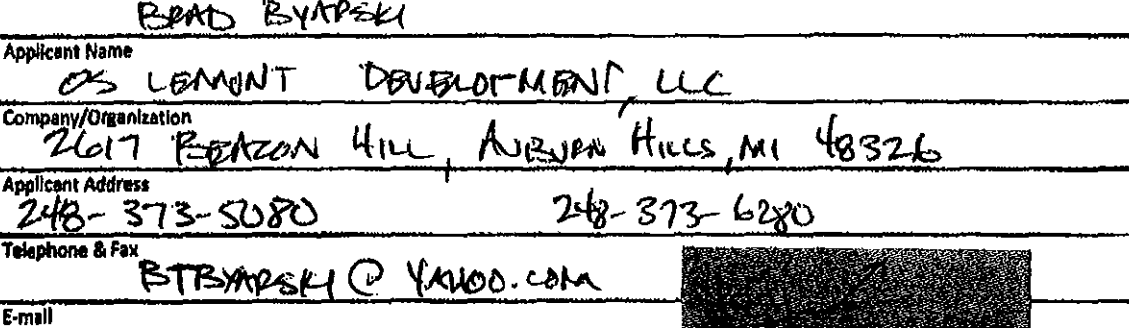 BRAD BYARSKI
Applicant Name
OS LEMONT DEVELOPMENT, LLC
Company/Organization
2617 BEACON HILL, AUBURN HILLS, MI 48326
Applicant Address
248-373-5080 248-373-6280
Telephone & Fax
BTBYARSKI@YAHOO.COM
E-mail